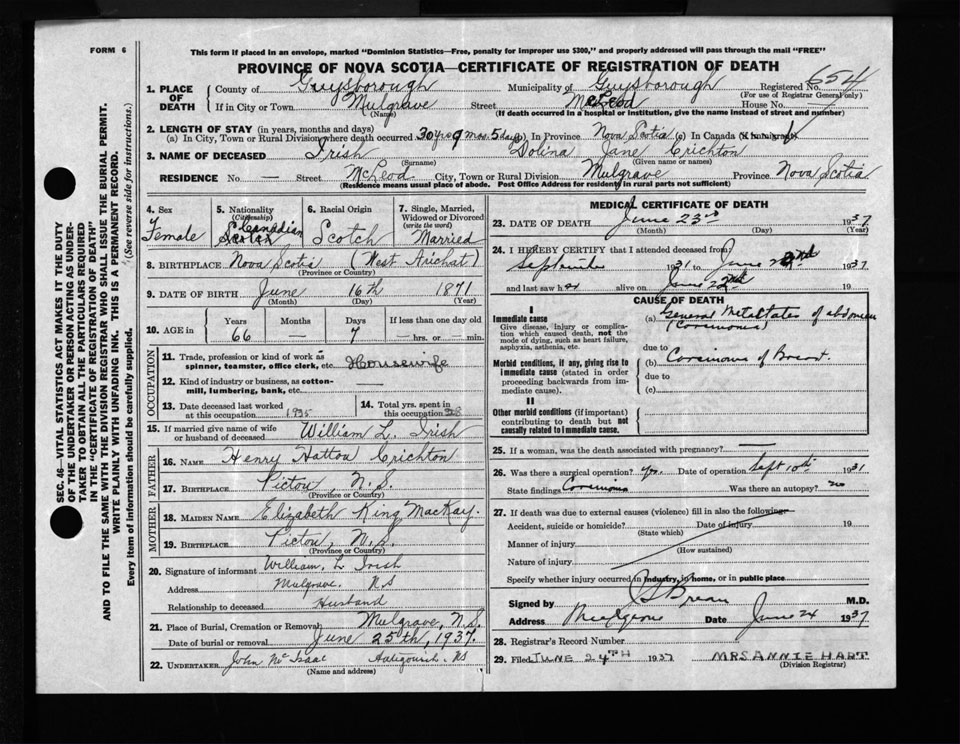 FORM 6
This form if placed in an envelope, marked "Dominion Statistics—Free, penalty for improper use $300," and properly addressed will pass through the mail "FREE"
PROVINCE OF NOVA SCOTIA—CERTIFICATE OF REGISTRATION OF DEATH
654
1. PLACE OF DEATH County of Guysborough Municipality of Guysborough Registered No.
(For use of Registrar General only)
If in City or Town Mulgrave Street McLeod House No. —
(Name) (If death occurred in a hospital or institution, give the name instead of street and number)
2. LENGTH OF STAY (in years, months and days)
(a) In City, Town or Rural Division where death occurred 30 yrs 9 mos. 5 days (b) In Province Nova Scotia (c) In Canada (if immigrant)
3. NAME OF DECEASED Irish Dolina Jane Crichton
(Surname) (Given name or names)
RESIDENCE No. — Street McLeod City, Town or Rural Division Mulgrave Province Nova Scotia
(Residence means usual place of abode. Post Office Address for residents in rural parts not sufficient)
4. Sex Female
5. Nationality (Citizenship) Canadian
6. Racial Origin Scotch
7. Single, Married, Widowed or Divorced (write the word) Married
8. BIRTHPLACE Nova Scotia (West Arichat)
(Province or Country)
9. DATE OF BIRTH June 16th 1871
(Month) (Day) (Year)
10. AGE in Years 66 Months — Days 7 If less than one day old
hrs. or min.
OCCUPATION
11. Trade, profession or kind of work as spinner, teamster, office clerk, etc. Housewife
12. Kind of industry or business, as cotton-mill, lumbering, bank, etc. —
13. Date deceased last worked at this occupation 1935
14. Total yrs. spent in this occupation 28
15. If married give name of wife or husband of deceased William L. Irish
FATHER
16. NAME Henry Hatton Crichton
17. BIRTHPLACE Pictou, N.S.
(Province or Country)
MOTHER
18. MAIDEN NAME Elizabeth King MacKay.
19. BIRTHPLACE Pictou, N.S.
(Province or Country)
20. Signature of informant William, L Irish
Address Mulgrave. NS
Relationship to deceased Husband
21. Place of Burial, Cremation or Removal Mulgrave, N.S.
Date of burial or removal June 25th, 1937.
22. UNDERTAKER John McIsaac Antigonish. NS
(Name and address)
MEDICAL CERTIFICATE OF DEATH
23. DATE OF DEATH June 23rd 1937
(Month) (Day) (Year)
24. I HEREBY CERTIFY that I attended deceased from
September 1931 to June 22nd 1937
and last saw her alive on June 22nd 19
CAUSE OF DEATH
I
Immediate cause
Give disease, injury or complication which caused death, not the mode of dying, such as heart failure, asphyxia, asthenia, etc.
(a) General Metastates of abdomen
(Carcinoma)
due to
Morbid conditions, if any, giving rise to immediate cause (stated in order proceeding backwards from immediate cause).
(b) Carcinoma of Breast.
due to
(c)
II
Other morbid conditions (if important) contributing to death but not causally related to immediate cause.
25. If a woman, was the death associated with pregnancy? —
26. Was there a surgical operation? yes. Date of operation Sept 10th 1931
State findings Carcinoma Was there an autopsy? no
27. If death was due to external causes (violence) fill in also the following:
Accident, suicide or homicide? Date of injury 19
(State which)
Manner of injury
(How sustained)
Nature of injury
Specify whether injury occurred in industry, in home, or in public place
Signed by M.D.
Address Mulgrave Date June 24 1937
28. Registrar's Record Number
29. Filed JUNE 24TH 1937 MRS ANNIE HART
(Division Registrar)
SEC. 46—VITAL STATISTICS ACT MAKES IT THE DUTY
OF THE UNDERTAKER OR PERSON ACTING AS UNDERTAKER TO OBTAIN ALL THE PARTICULARS REQUIRED
IN THE "CERTIFICATE OF REGISTRATION OF DEATH"
AND TO FILE THE SAME WITH THE DIVISION REGISTRAR WHO SHALL ISSUE THE BURIAL PERMIT.
WRITE PLAINLY WITH UNFADING INK. THIS IS A PERMANENT RECORD.
Every item of information should be carefully supplied. (See reverse side for instructions.)